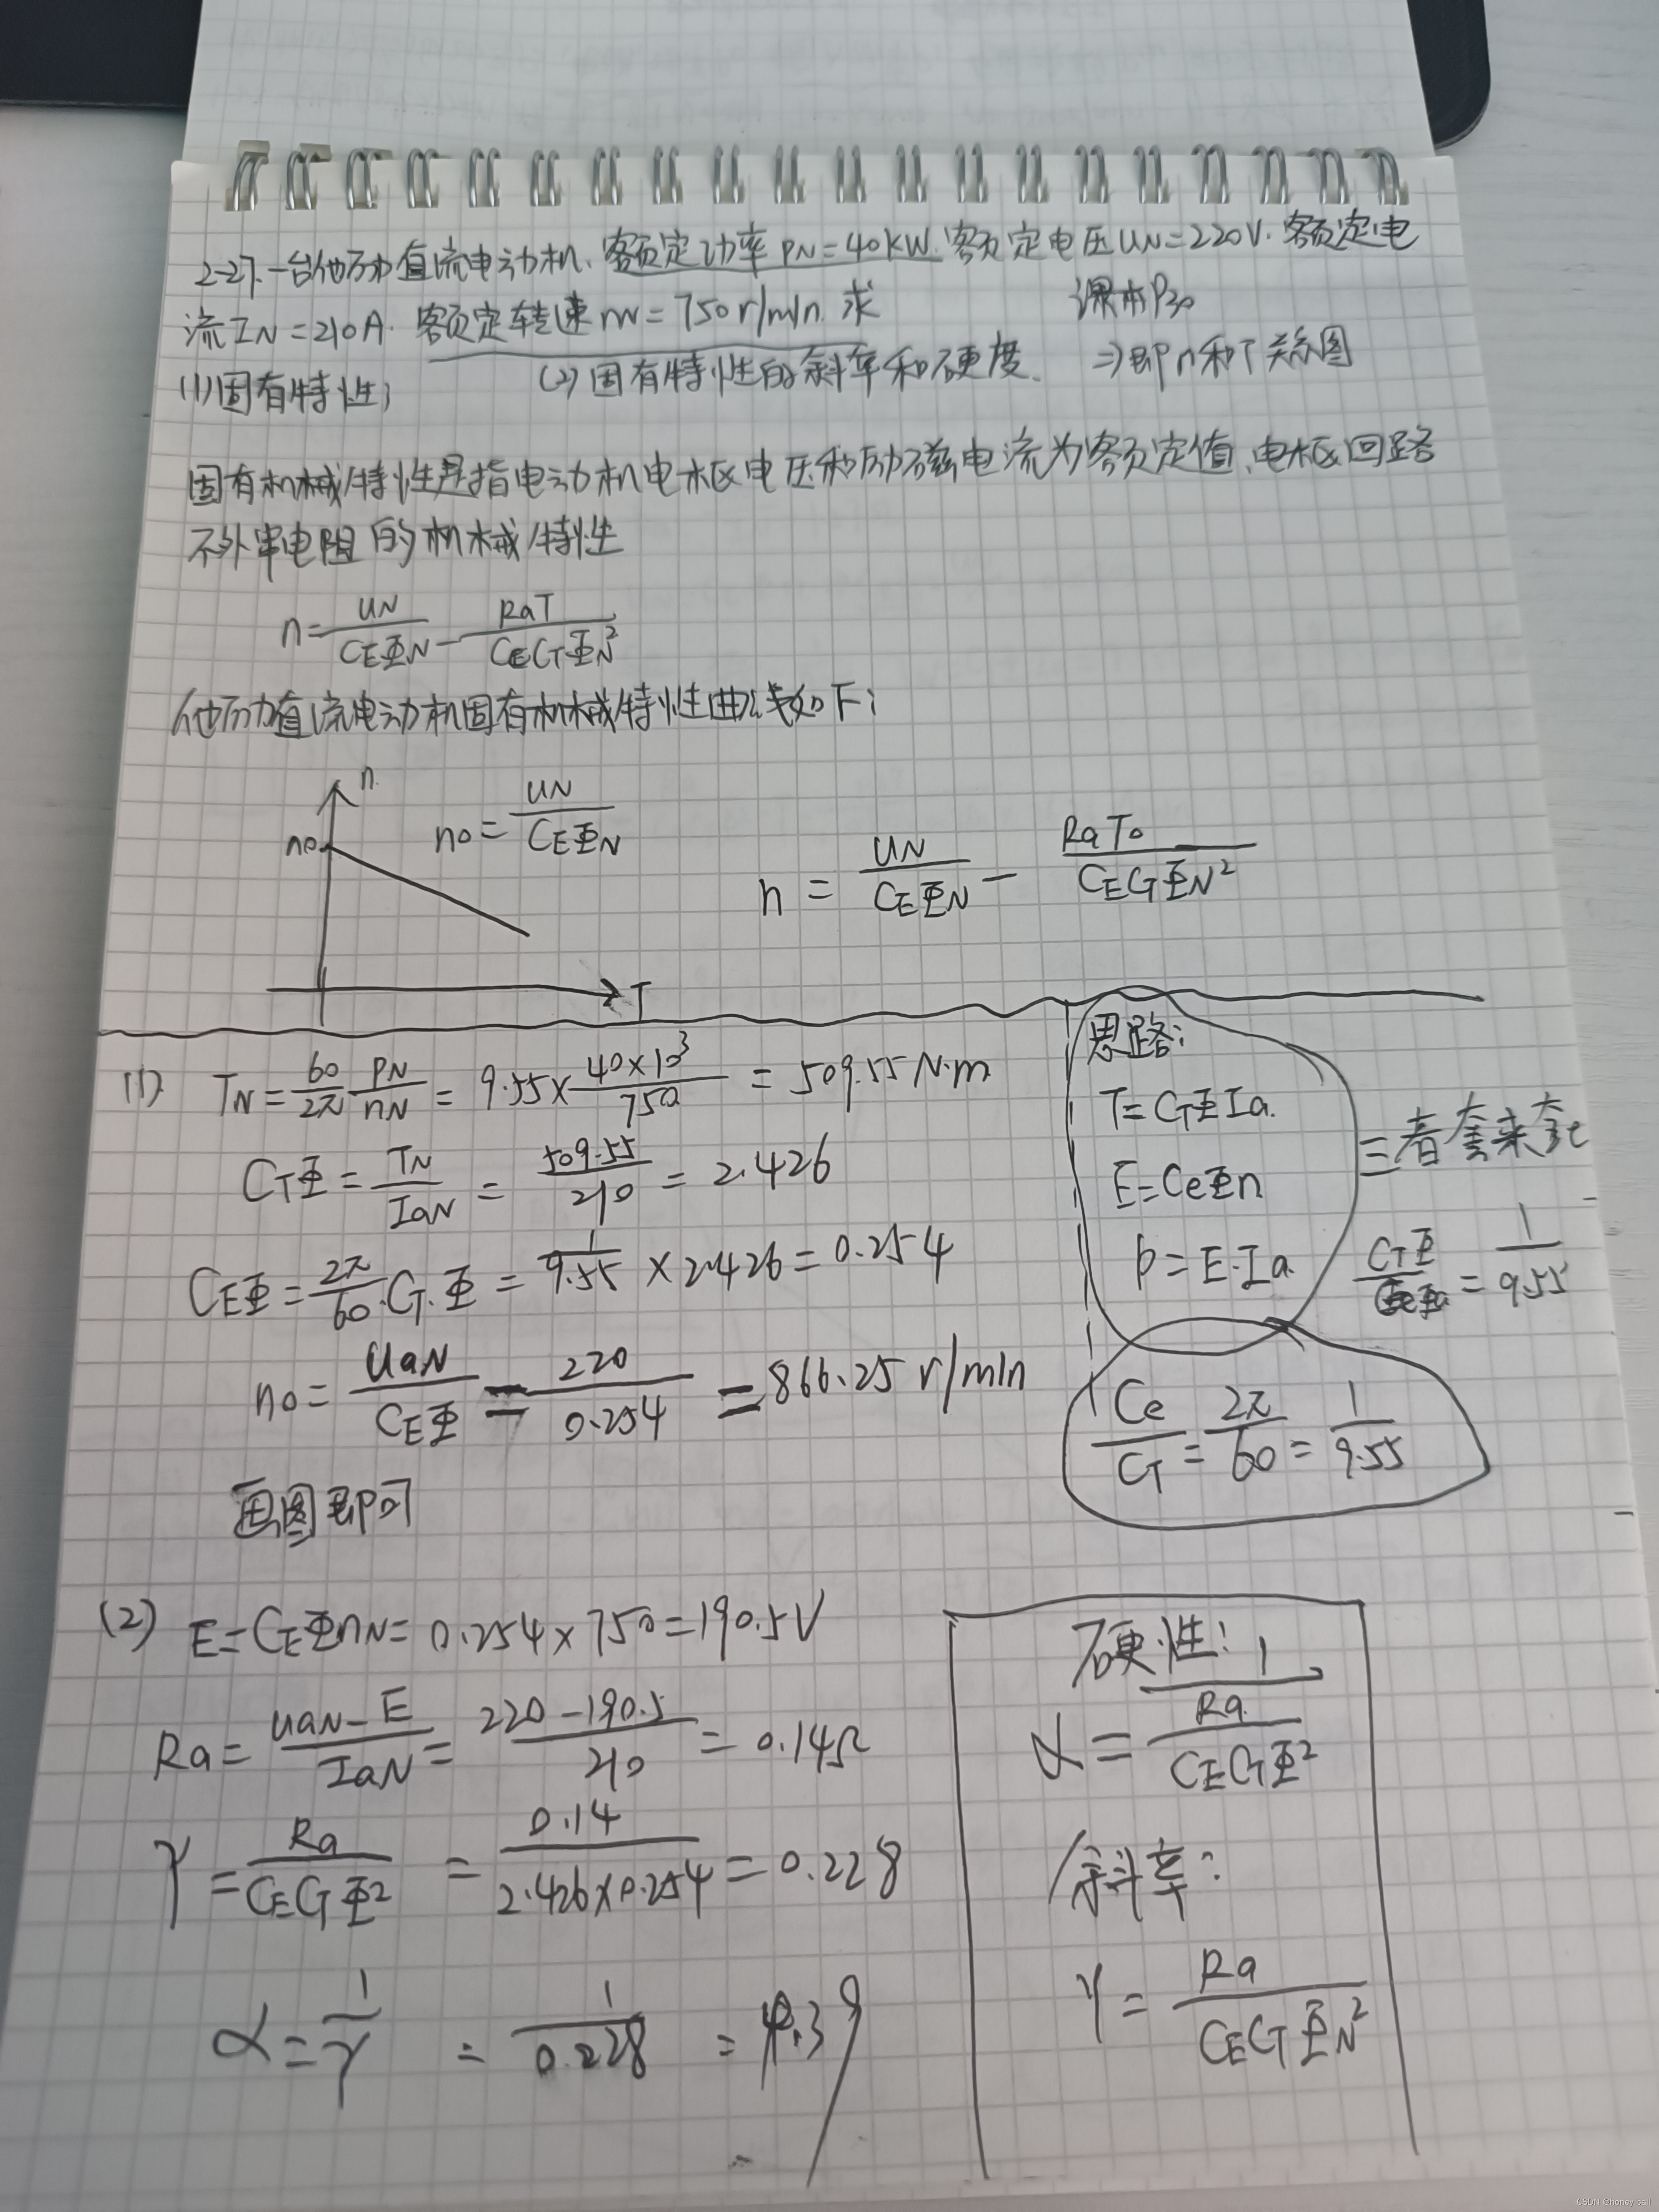 2-27.一台他励直流电动机、额定功率PN=40KW.额定电压UN=220V.额定电
流IN=210A.额定转速nN=750r/min.求
课本P30
(1)固有特性;
(2)固有特性的斜率和硬度.
=>即n和T关系图
固有机械特性是指电动机电枢电压和励磁电流为额定值、电枢回路
不外串电阻的机械特性
n=UN/CEΦN-RaT/CECTΦN²
他励直流电动机固有机械特性曲线如下;
n
n0
n0=UN/CEΦN
n=UN/CEΦN-RaT0/CECTΦN²
T
(1) TN=60/2π PN/nN=9.55×40×10³/750=509.55N·m
CTΦ=TN/IaN=509.55/210=2.426
CEΦ=2π/60·CT.Φ=1/9.55×2.426=0.254
n0=UaN/CEΦ=220/0.254=866.25 r/min
画图即可
思路:
T=CTΦIa.
E=CeΦn
P=E·Ia.
三者套来套
CTΦ/=1/9.55
Ce/CT=2π/60=1/9.55
(2) E=CEΦnN=0.254×750=190.5V
Ra=UaN-E/IaN=220-190.5/210=0.14Ω
γ=Ra/CECTΦ²=0.14/2.426×0.254=0.228
α=1/γ=1/0.228=4.39
硬性:
α=1/Ra/CECTΦ²
斜率:
γ=Ra/CECTΦN²
CSDN @honey ball